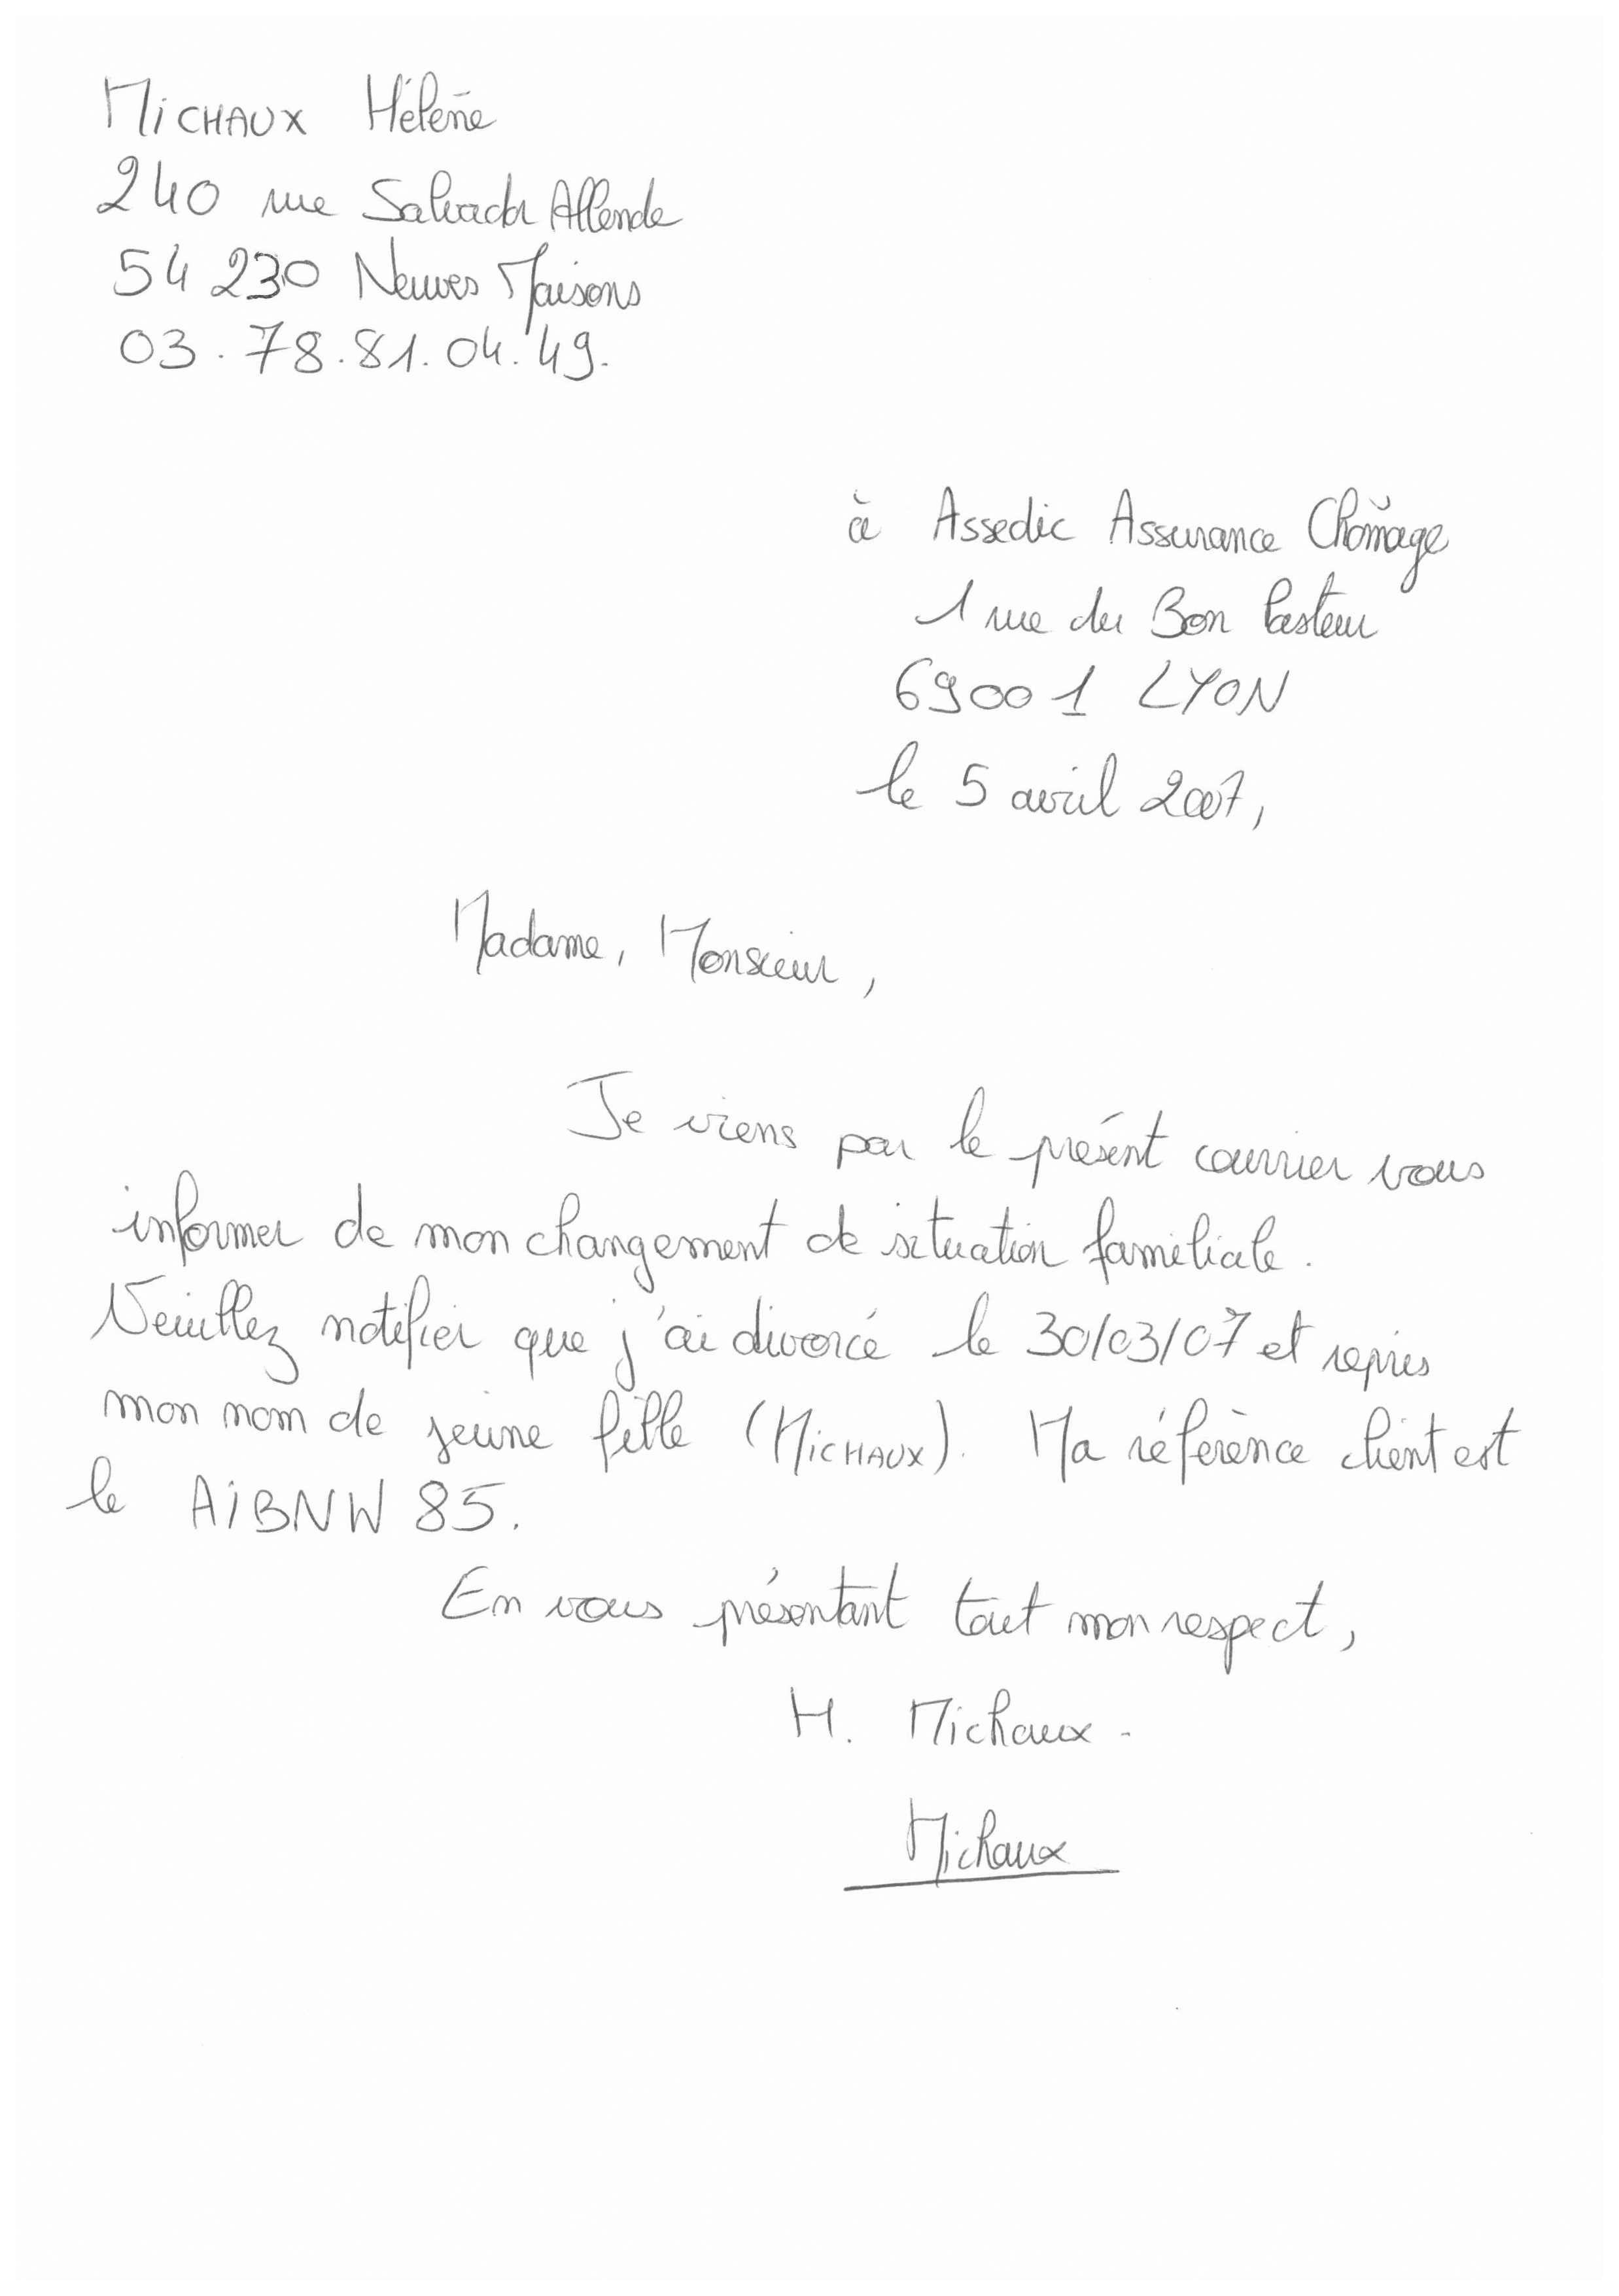 MICHAUX Hélène
240 rue Salvador Allende
54 230 Neuves Maisons
03.78.81.04.49.
à Assedic Assurance Chômage
1 rue du Bon Pasteur
69001 LYON
le 5 avril 2007,
Madame, Monsieur,
Je viens par le présent courrier vous
informer de mon changement de situation familiale.
Veuillez notifier que j'ai divorcé le 30/03/07 et repris
mon nom de jeune fille (MICHAUX). Ma référence client est
le AIBNW 85.
En vous présentant tout mon respect,
H. Michaux.
Michaux